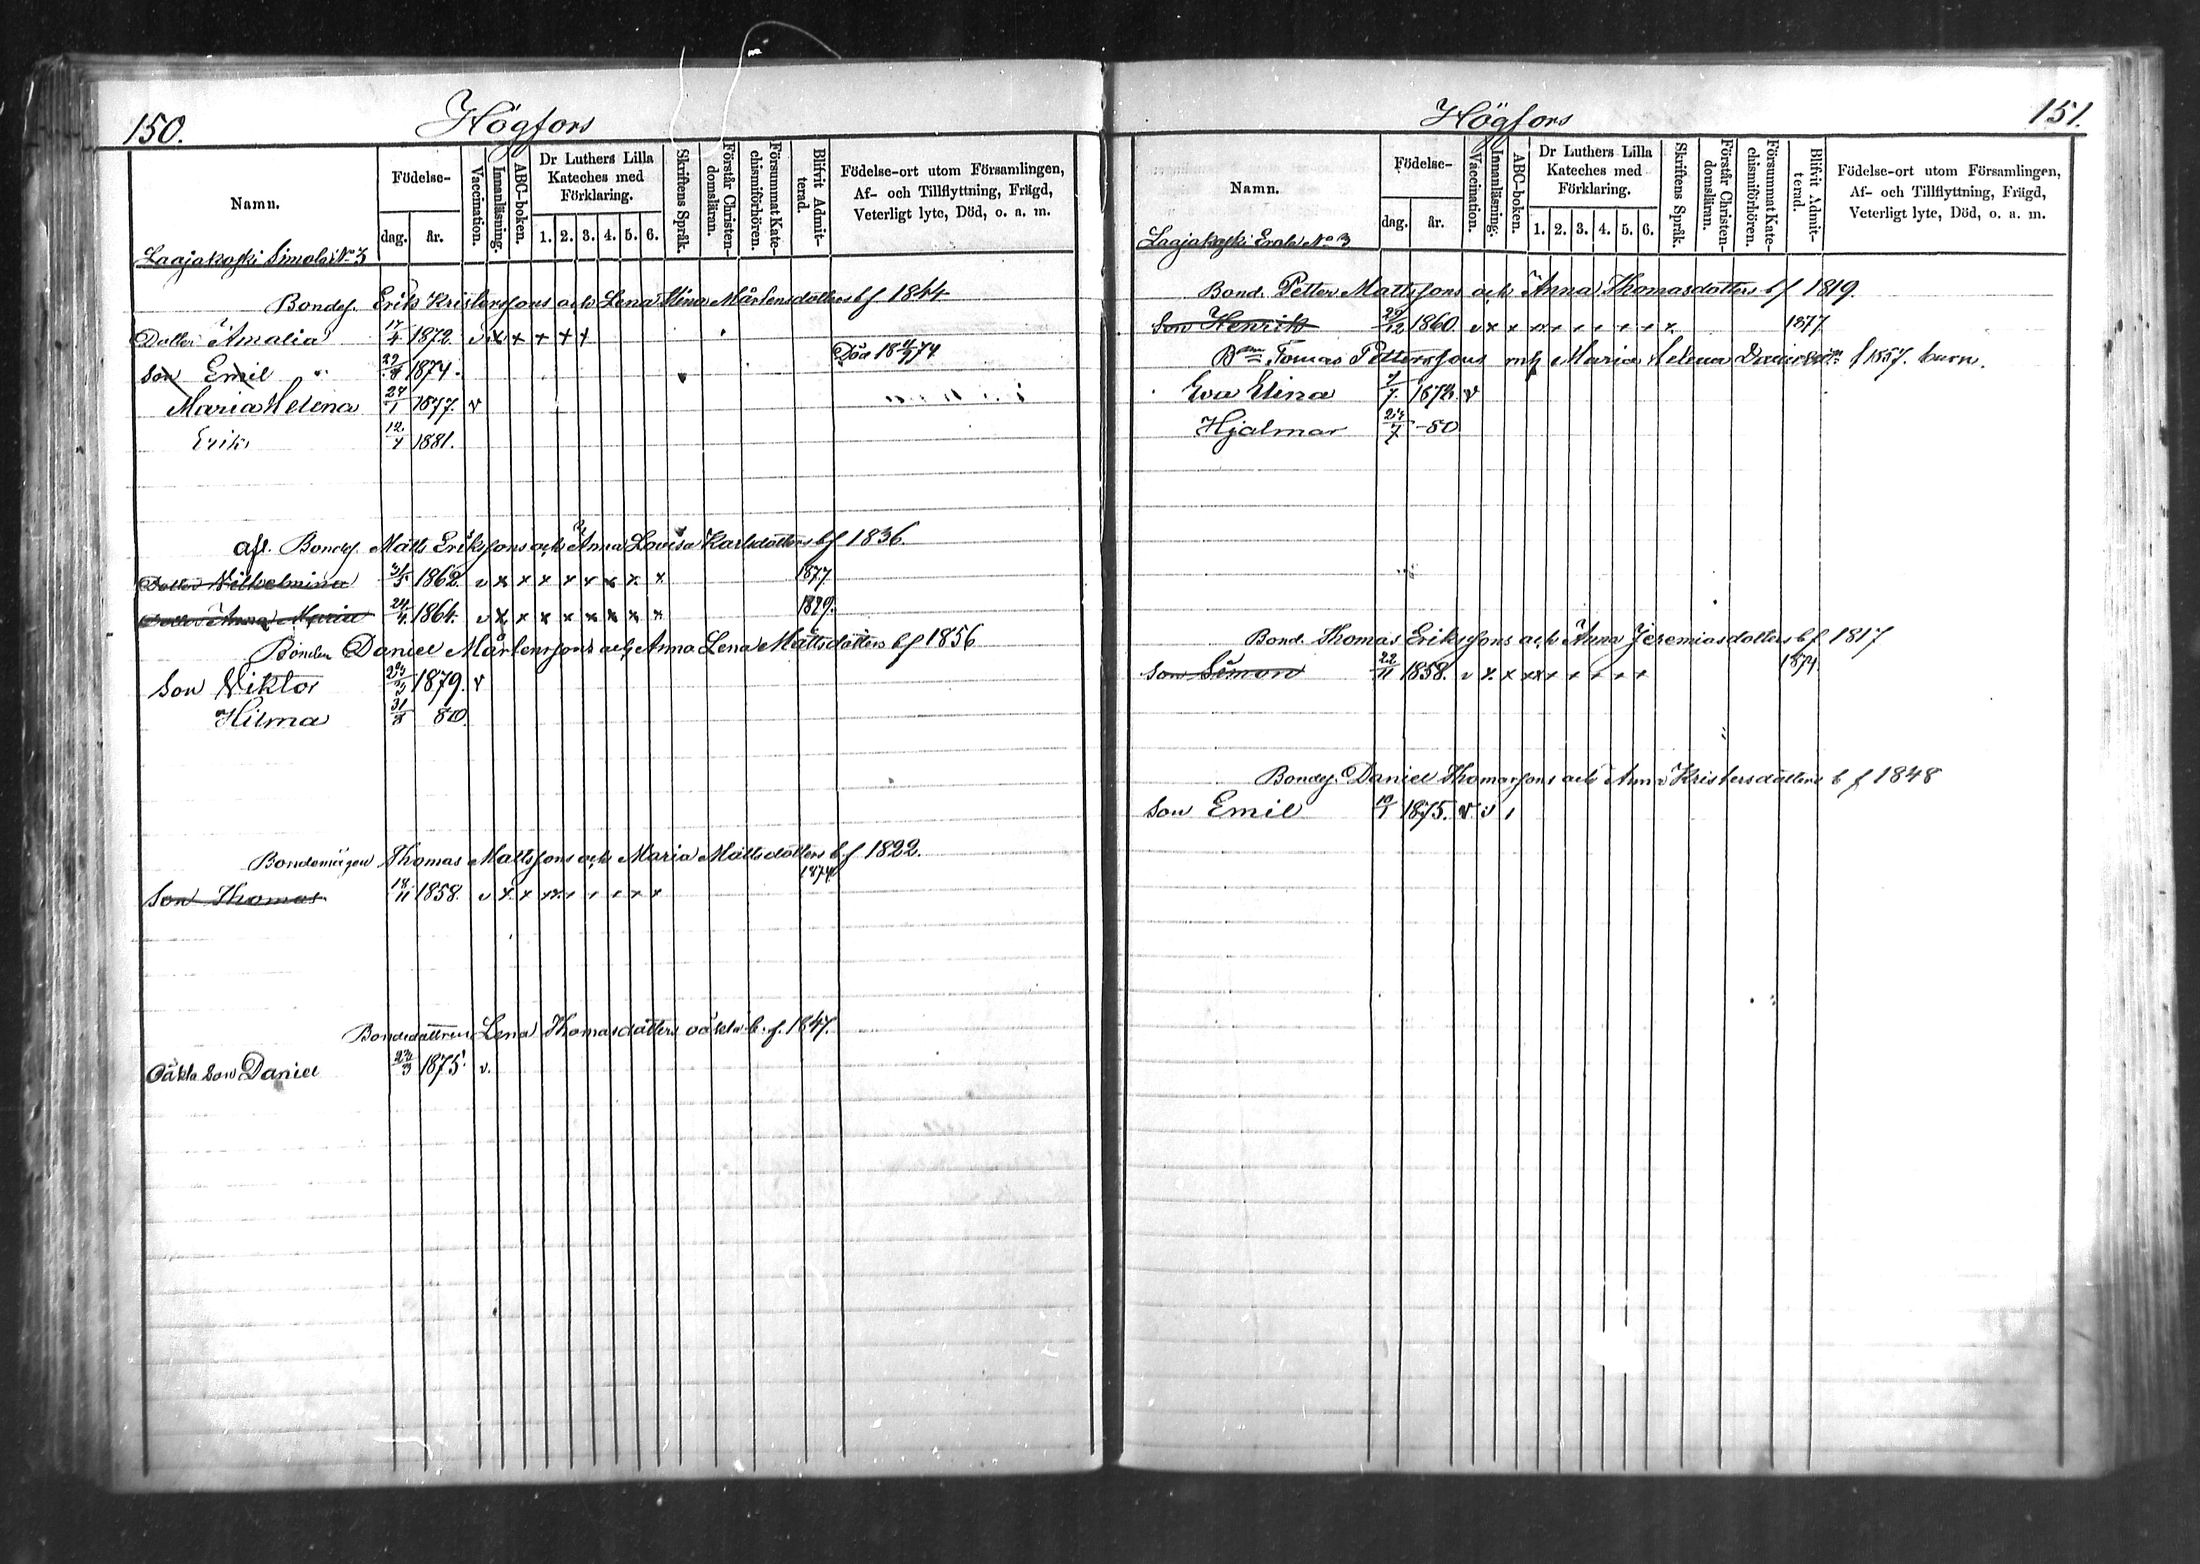 150.
Högfors
Namn.
Födelse-
dag.
år.
Vaccination.
Innanläsning.
ABC-boken.
Dr Luthers Lilla Kateches med Förklaring.
1. 2. 3. 4. 5. 6.
Skriftens Språk.
Förstår Christen-domsläran.
Försummat Kate-chismiförhören.
Blifvit Admit-terad.
Födelse-ort utom Församlingen,
Af- och Tillflyttning, Frägd,
Veterligt lyte, Död, o. a. m.
Laajakoski Simola No 3
Bondes. Erik Kristerssons och Lena Stina Mårtensdotters bf 1844
Dotter Amalia 17/4 1872. v x x x x x
Son Emil 29/4 1874. Död 18 74
Maria Helena 27/1 1877. v
Erik 12/4 1881.
afl. Bondes. Matts Erikssons och Anna Lovisa Karlsdotters bf 1836.
Dotter Wilhelmina 31/5 1862. v x x x x x x x x 1877
Dotter Anna Maria 24/4 1864. v x x x x x x x x 1879.
Bonden Daniel Mårtenssons och Anna Lena Mattsdotters bf 1856
Son Viktor 23/3 1879. v
Hilma 31/8 80.
Bondemågen Thomas Mattssons och Maria Mattsdotters bf 1822.
Son Thomas 18/11 1858. v x x xx + + + x x 1874
Bondedottren Lena Thomasdotters oäkta b. f. 1847.
Oäkta Son Daniel 23/3 1875. v.
Högfors
151.
Namn.
Födelse-
dag.
år.
Vaccination.
Innanläsning.
ABC-boken.
Dr Luthers Lilla Kateches med Förklaring.
1. 2. 3. 4. 5. 6.
Skriftens Språk.
Förstår Christen-domsläran.
Försummat Kate-chismiförhören.
Blifvit Admit-terad.
Födelse-ort utom Församlingen,
Af- och Tillflyttning, Frägd,
Veterligt lyte, Död, o. a. m.
Laajakoski Erola No 3
Bond. Petter Mattssons och Anna Thomasdotters bf 1819.
Son Henrik 29/12 1860 v x x xx + + + + + x 1877
Tomas Petterssons Maria Helena f 1857. barn.
Eva Stina 7/7. 187 v
Hjalmar 27/7 -80
Bond. Thomas Erikssons och Anna Jeremiasdotters bf 1817
Son Simon 22/11 1858. v x x xx + + + + + 1874
Bondes. Daniel Thomassons och Anna Kristersdotters bf 1848
Son Emil 10/1 1875. v v 1